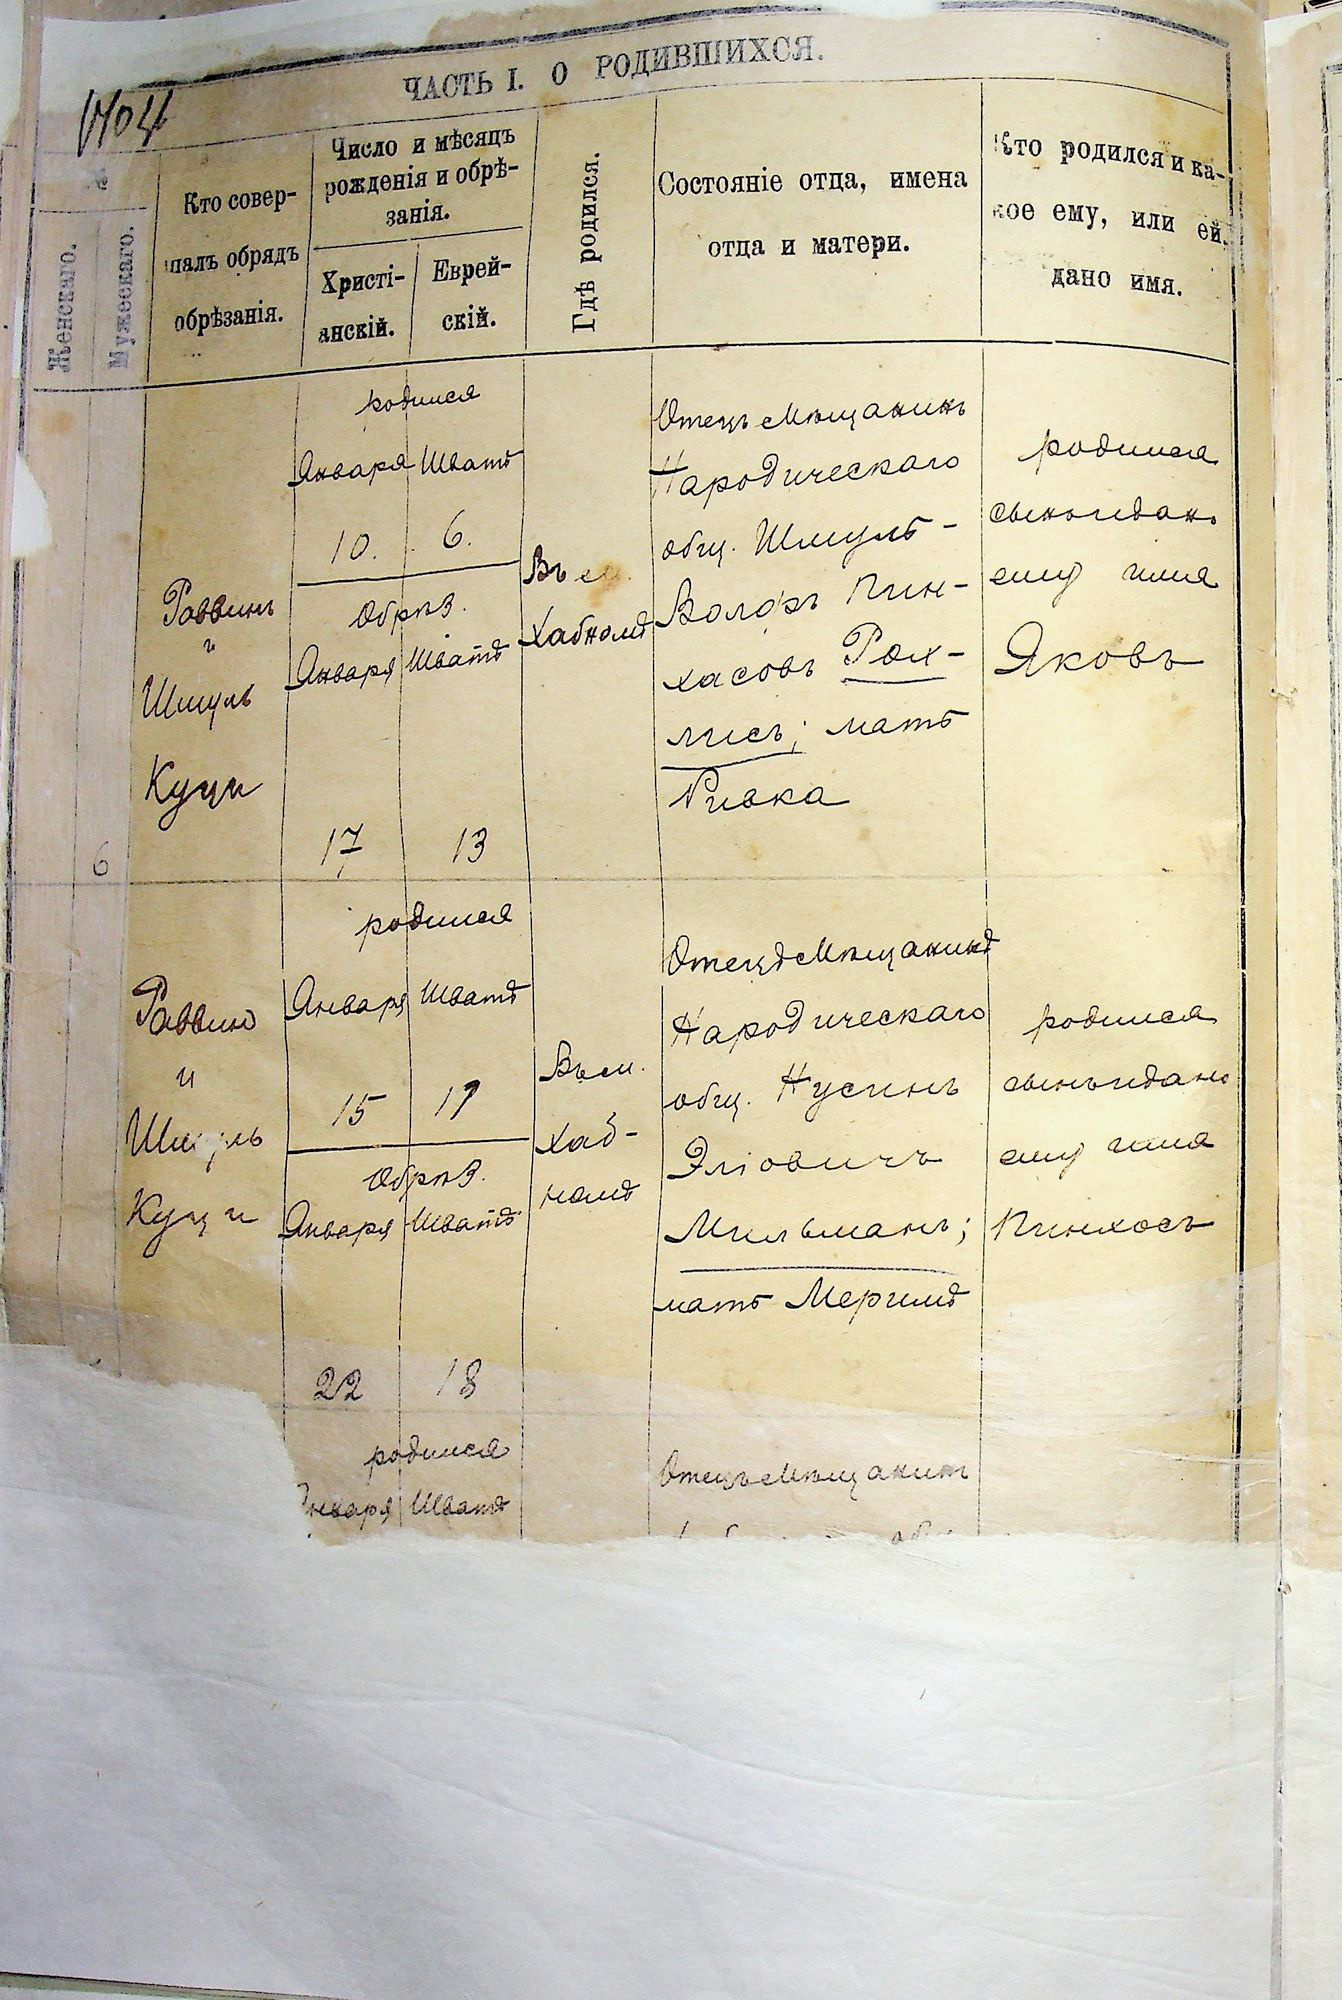 ЧАСТЬ I. О РОДИВШИХСЯ.
№
Женскаго.
Мужескаго.
Кто совер-
шалъ обрядъ
обрѣзанія.
Число и мѣсяцъ
рожденія и обрѣ-
занія.
Христі-
анскій.
Еврей-
скій.
Гдѣ родился.
Состояніе отца, имена
отца и матери.
Кто родился и ка-
кое ему, или ей,
дано имя.
6
Раввинъ
и
Шмуль
Куци
родился
Января Шватъ
10. 6.
Обрѣз.
Января Шватъ
17 13
Въ м.
Хабномъ
Отецъ Мѣщанинъ
Народическаго
общ. Шмуль-
Волфъ Пин-
хасовъ Рох-
лисъ; мать
Ривка
родился
сынъ и данъ
ему имя
Яковъ
Раввинъ
и
Шмуль
Куци
родился
Января Шватъ
15 11
Обрѣз.
Января Шватъ
22 18
Въ м.
Хаб-
номъ
Отецъ Мѣщанинъ
Народическаго
общ. Нусинъ
Эліовичъ
Мильманъ;
мать Меримъ
родился
сынъ и дано
ему имя
Пинхосъ
родился
Января Шватъ
Отецъ Мѣщанинъ